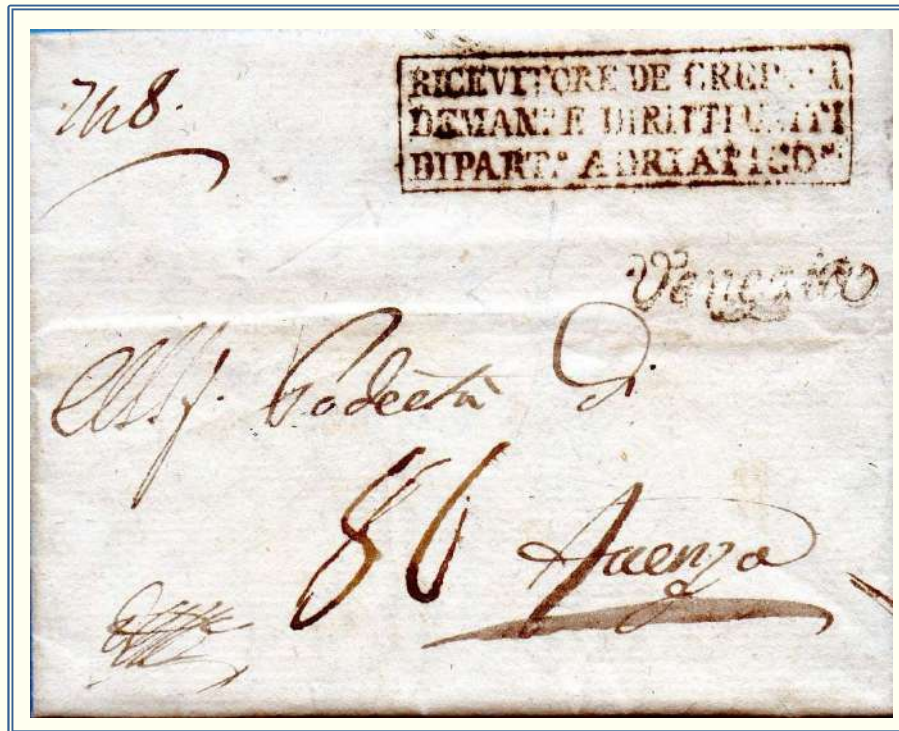 748.
RICEVITORE DE
DEMAN.E E DIRITTI UNITI
DIPART.º ADRIATICOº
Venezia
Podestà Di
86
Faenza